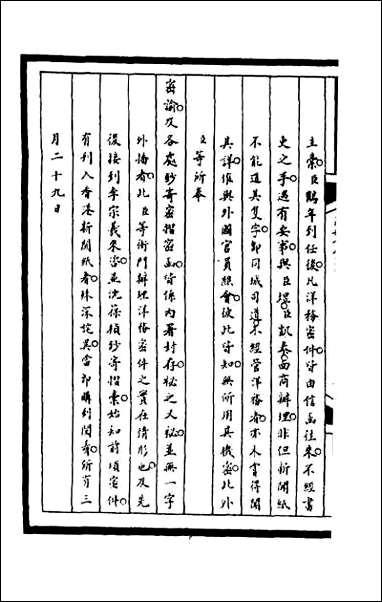 主稾臣鵬年列任後凡洋務密件皆由信函往來不經書
吏之手遇有要事與臣璟臣凱泰面商辦理非但新聞紙
不能道其隻字即同城司道不經管洋務者亦未嘗得聞
其詳惟與外國官員照會彼此皆知無所用其機密此外
臣等所奉
密諭及各處鈔寄密摺密函皆係內署封存秘之又秘並無一字
外播者此臣等衙門辦理洋務密件之實在情形也及先
後接到李宗羲來咨並沈葆楨鈔寄摺稾始知前項密件
有列入香港新聞紙者殊深詫異當即購列閱看所有三
月二十九日